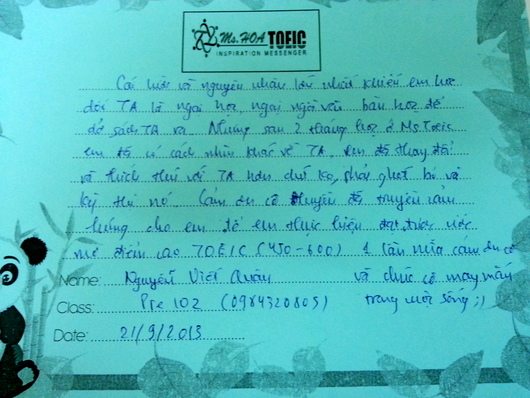 Ms. HOA TOEIC
INSPIRATION MESSENGER
Cái lười và nguyên nhân lớn nhất khiến em học
dốt TA là ngại học, ngại ngồi vào bàn học để
dở sách TA ra. Nhưng sau 2 tháng học ở Ms Toeic
em đã có cách nhìn khác về TA, em đã thay đổi
và thích thú với TA hơn chứ ko phải ghét bỏ và
kỳ thị nó. Cảm ơn cô Huyền đã truyền cảm
hứng cho em để em thực hiện đạt được ước
mơ điểm cao TOEIC (450-600) 1 lần nữa cảm ơn cô
Name: Nguyễn Viết Quân và chúc cô may mắn
Class: Pre 102 (0984320805) trong cuộc sống ;)
Date: 21/9/2013